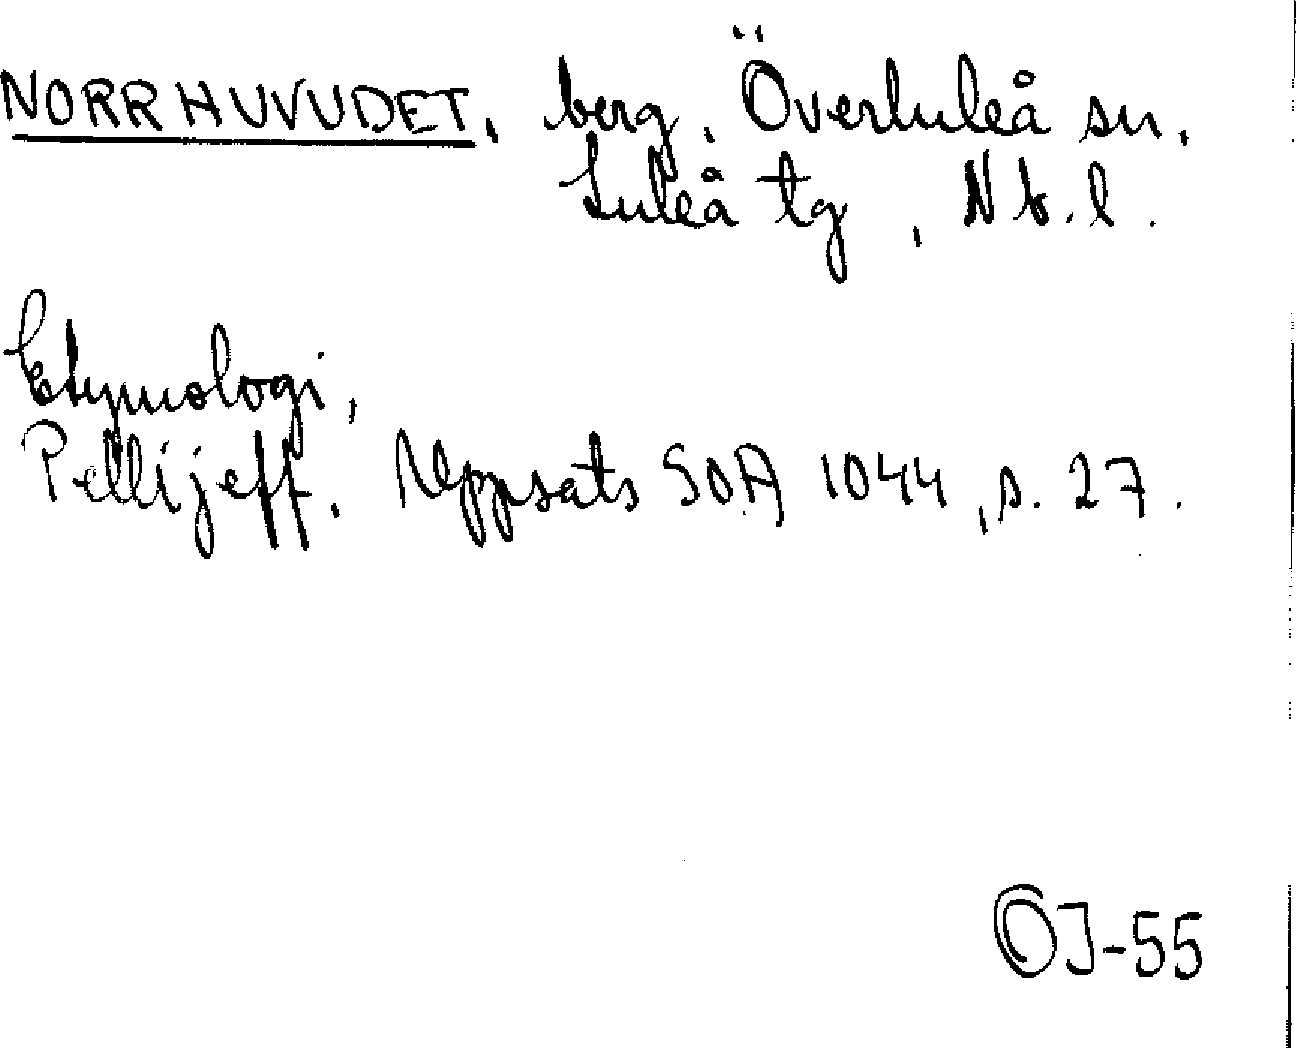 NORRHUVUDET, berg, Överluleå sn,
Luleå tg, Nb.l.
Etymologi,
Pellijeff, Uppsats SOA 1044, s. 27.
OJ-55